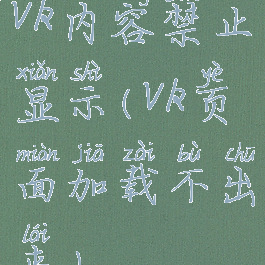 VK内容禁止
xiǎn shì yè
显示(VK页
miàn jiā zài bù chū
面加载不出
lái
来)